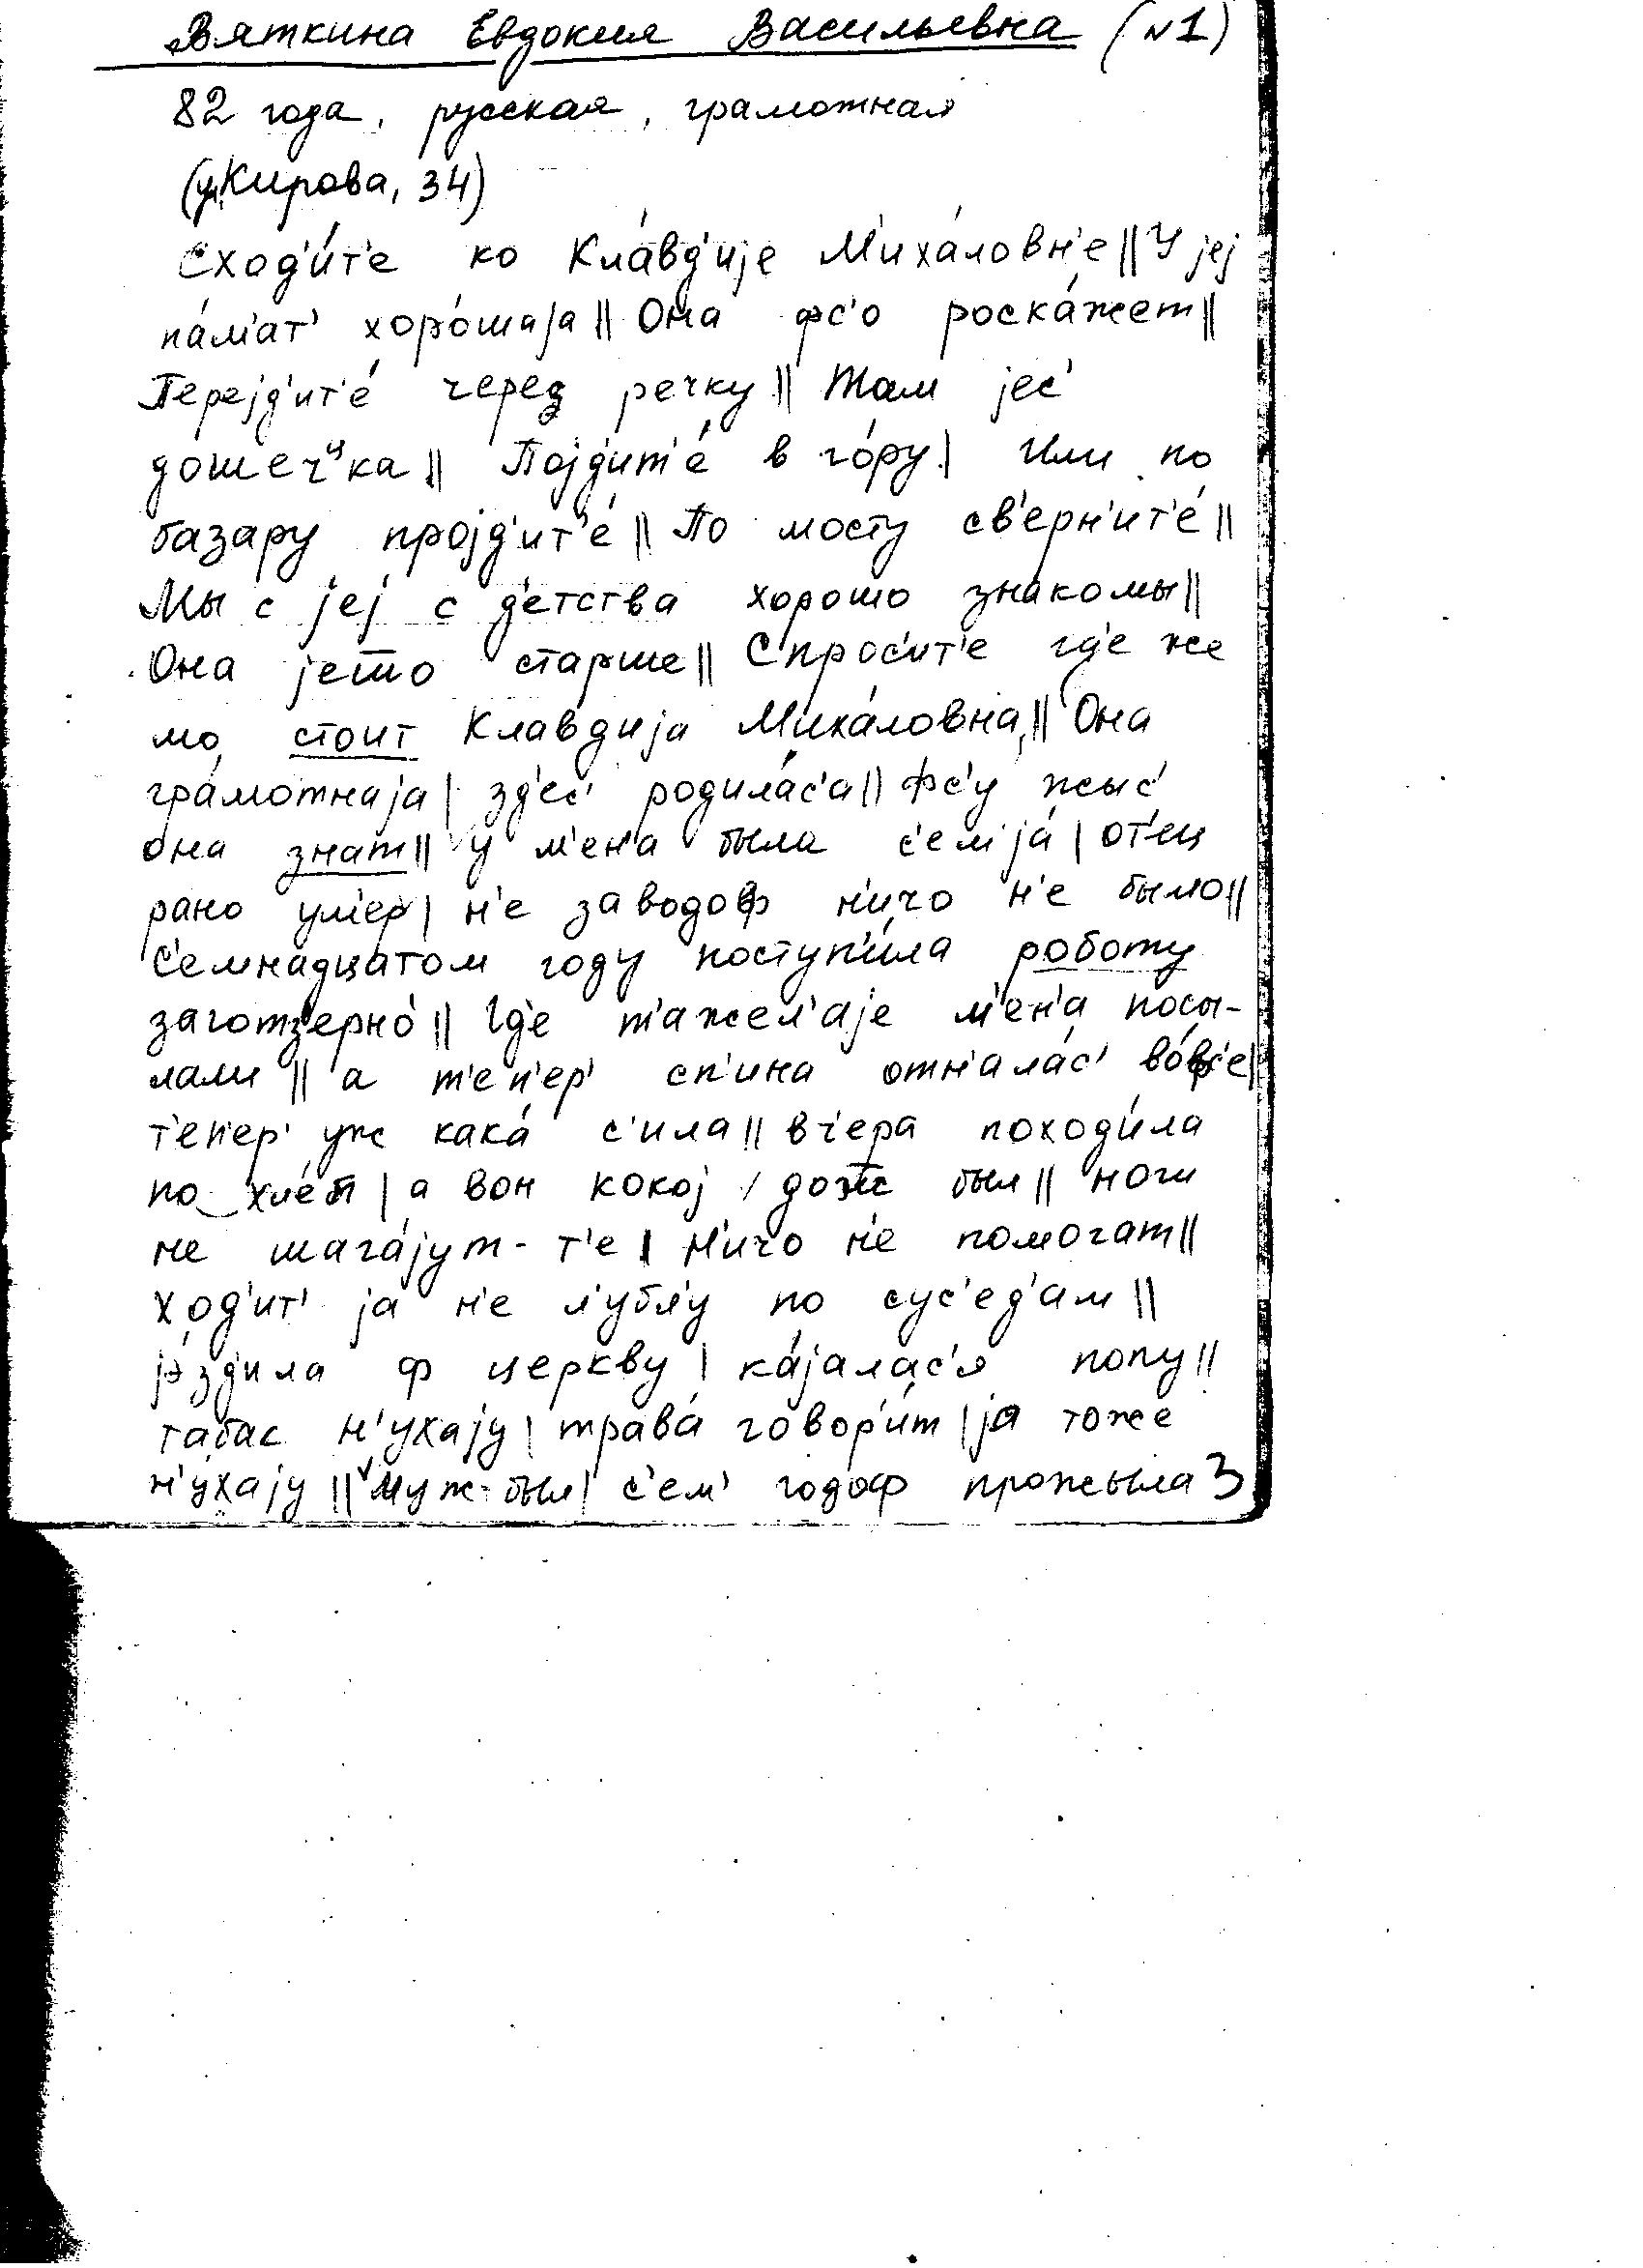 Вяткина Евдокия Васильевна (N1)
82 года, русская, грамотная
(ул. Кирова, 34)
Сход'и́т'е ко Кла́вд'ије М'иха́ловн'е || У јеј
па́м'ат' хоро́шаја || Она фс'о роска́жет ||
Перејд'ит'е́ черед речку || Там јес'
дошечᶣка || Појд'ит'е́ в го́ру | Или по
базару пројд'ит'е́ || По мосту св'ерн'ит'е́ ||
Мы с јеј с д'етства хорошо знакомы ||
Она јешо старше || Спрос'ит'е гд'е же
мо стоит Клавдија Миха́ловна || Она
гра́мотнаја | зд'ес' родила́с'а || Фс'у жыс'
она знат || У м'ен'а была с'емја́ | от'ец
рано ум'ер | н'е заводоф н'ичо н'е было ||
С'емнадцатом году поступ'и́ла роботу
заготзерно́ || Гд'е т'ажел'аје м'ен'а посы-
лали || а т'еп'ер' сп'ина отн'ала́с' во́фс'е |
т'еп'ер' уж кака́ с'ила || вч'ера походи́ла
по хле́п | а вон кокој дошш был || ноги
не шага́јут-т'е | Н'ичо н'е помогат ||
Ход'ит' ја н'е л'убл'у по сус'ед'ам ||
јэзд'ила ф церкву | ка́јалас'я попу ||
табас н'ухају | трава́ говор'и́т | ја тоже
н'у́хају || Муж был | с'ем' годоф прожыла З